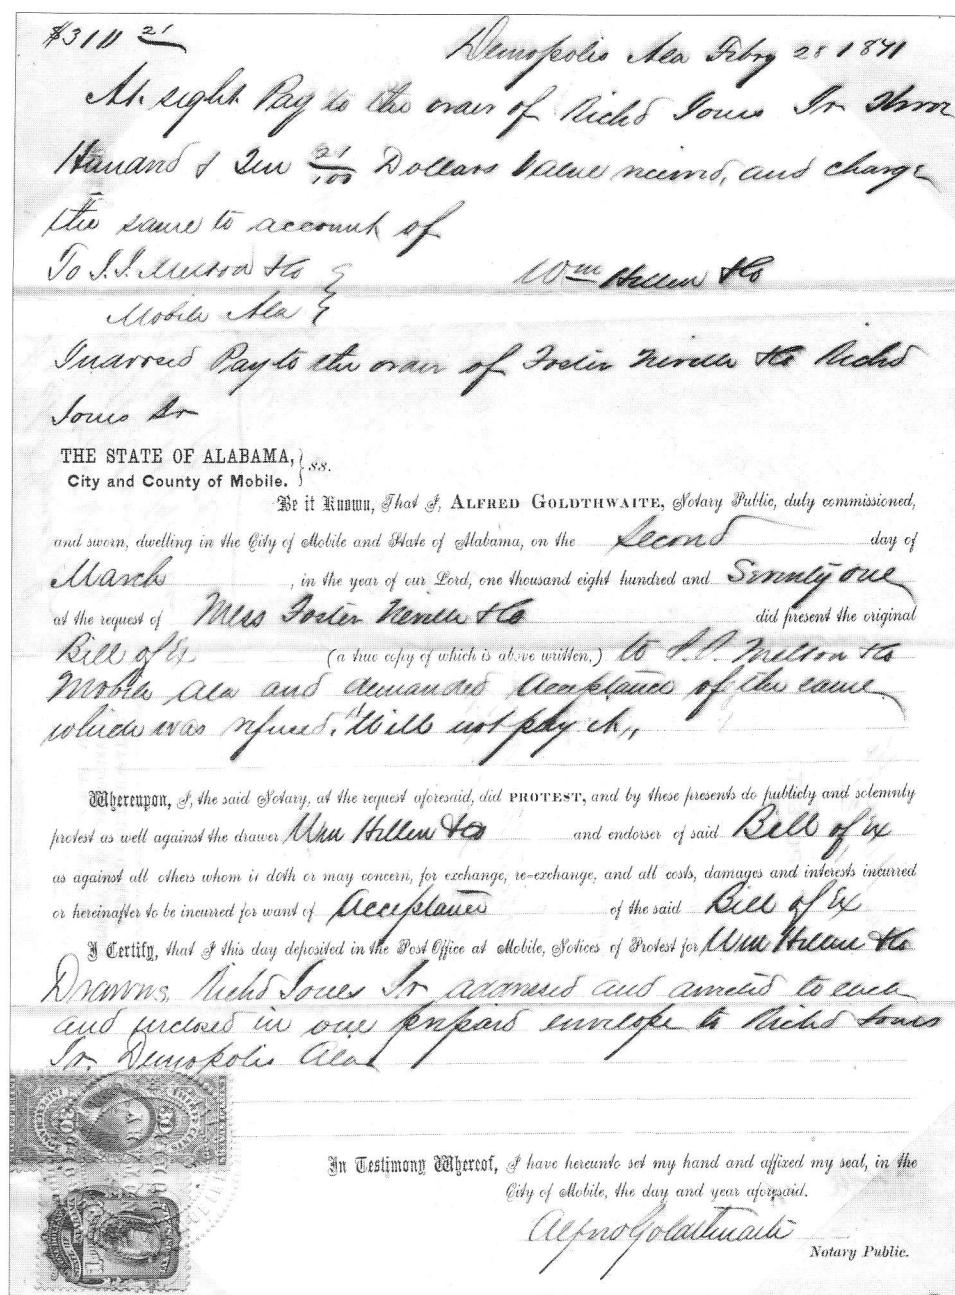 $310 21
Demopolis Ala Feby 28 1871
At sight Pay to the order of Richd Jones Jr Three
Hundred & Ten 21/100 Dollars Value received, and charge
the same to account of
To I. I. Melson & Co
Wm Hillen & Co
Mobile Ala
Indorsed Pay to the order of Foster Neville & Co Richd
Jones Jr
THE STATE OF ALABAMA,
City and County of Mobile. } ss.
Be it Known, That I, ALFRED GOLDTHWAITE, Notary Public, duly commissioned,
and sworn, dwelling in the City of Mobile and State of Alabama, on the Second day of
March , in the year of our Lord, one thousand eight hundred and Seventy one
at the request of Mess Foster Neville & Co did present the original
Bill of Ex (a true copy of which is above written,) to I. I. Melson & Co
Mobile Ala and demanded Acceptance of the same
which was refused. "Will not pay it"
Whereupon, I, the said Notary, at the request aforesaid, did PROTEST, and by these presents do publicly and solemnly
protest as well against the drawer Wm Hillen & Co and endorser of said Bill of Ex
as against all others whom it doth or may concern, for exchange, re-exchange, and all costs, damages and interests incurred
or hereinafter to be incurred for want of Acceptance of the said Bill of Ex
I Certify, that I this day deposited in the Post Office at Mobile, Notices of Protest for Wm Hillen & Co
Drawers, Richd Jones Jr addressed and directed to each
and enclosed in one prepaid envelope to Richd Jones
Jr. Demopolis Ala
In Testimony Whereof, I have hereunto set my hand and affixed my seal, in the
City of Mobile, the day and year aforesaid.
Alfred Goldthwaite
Notary Public.